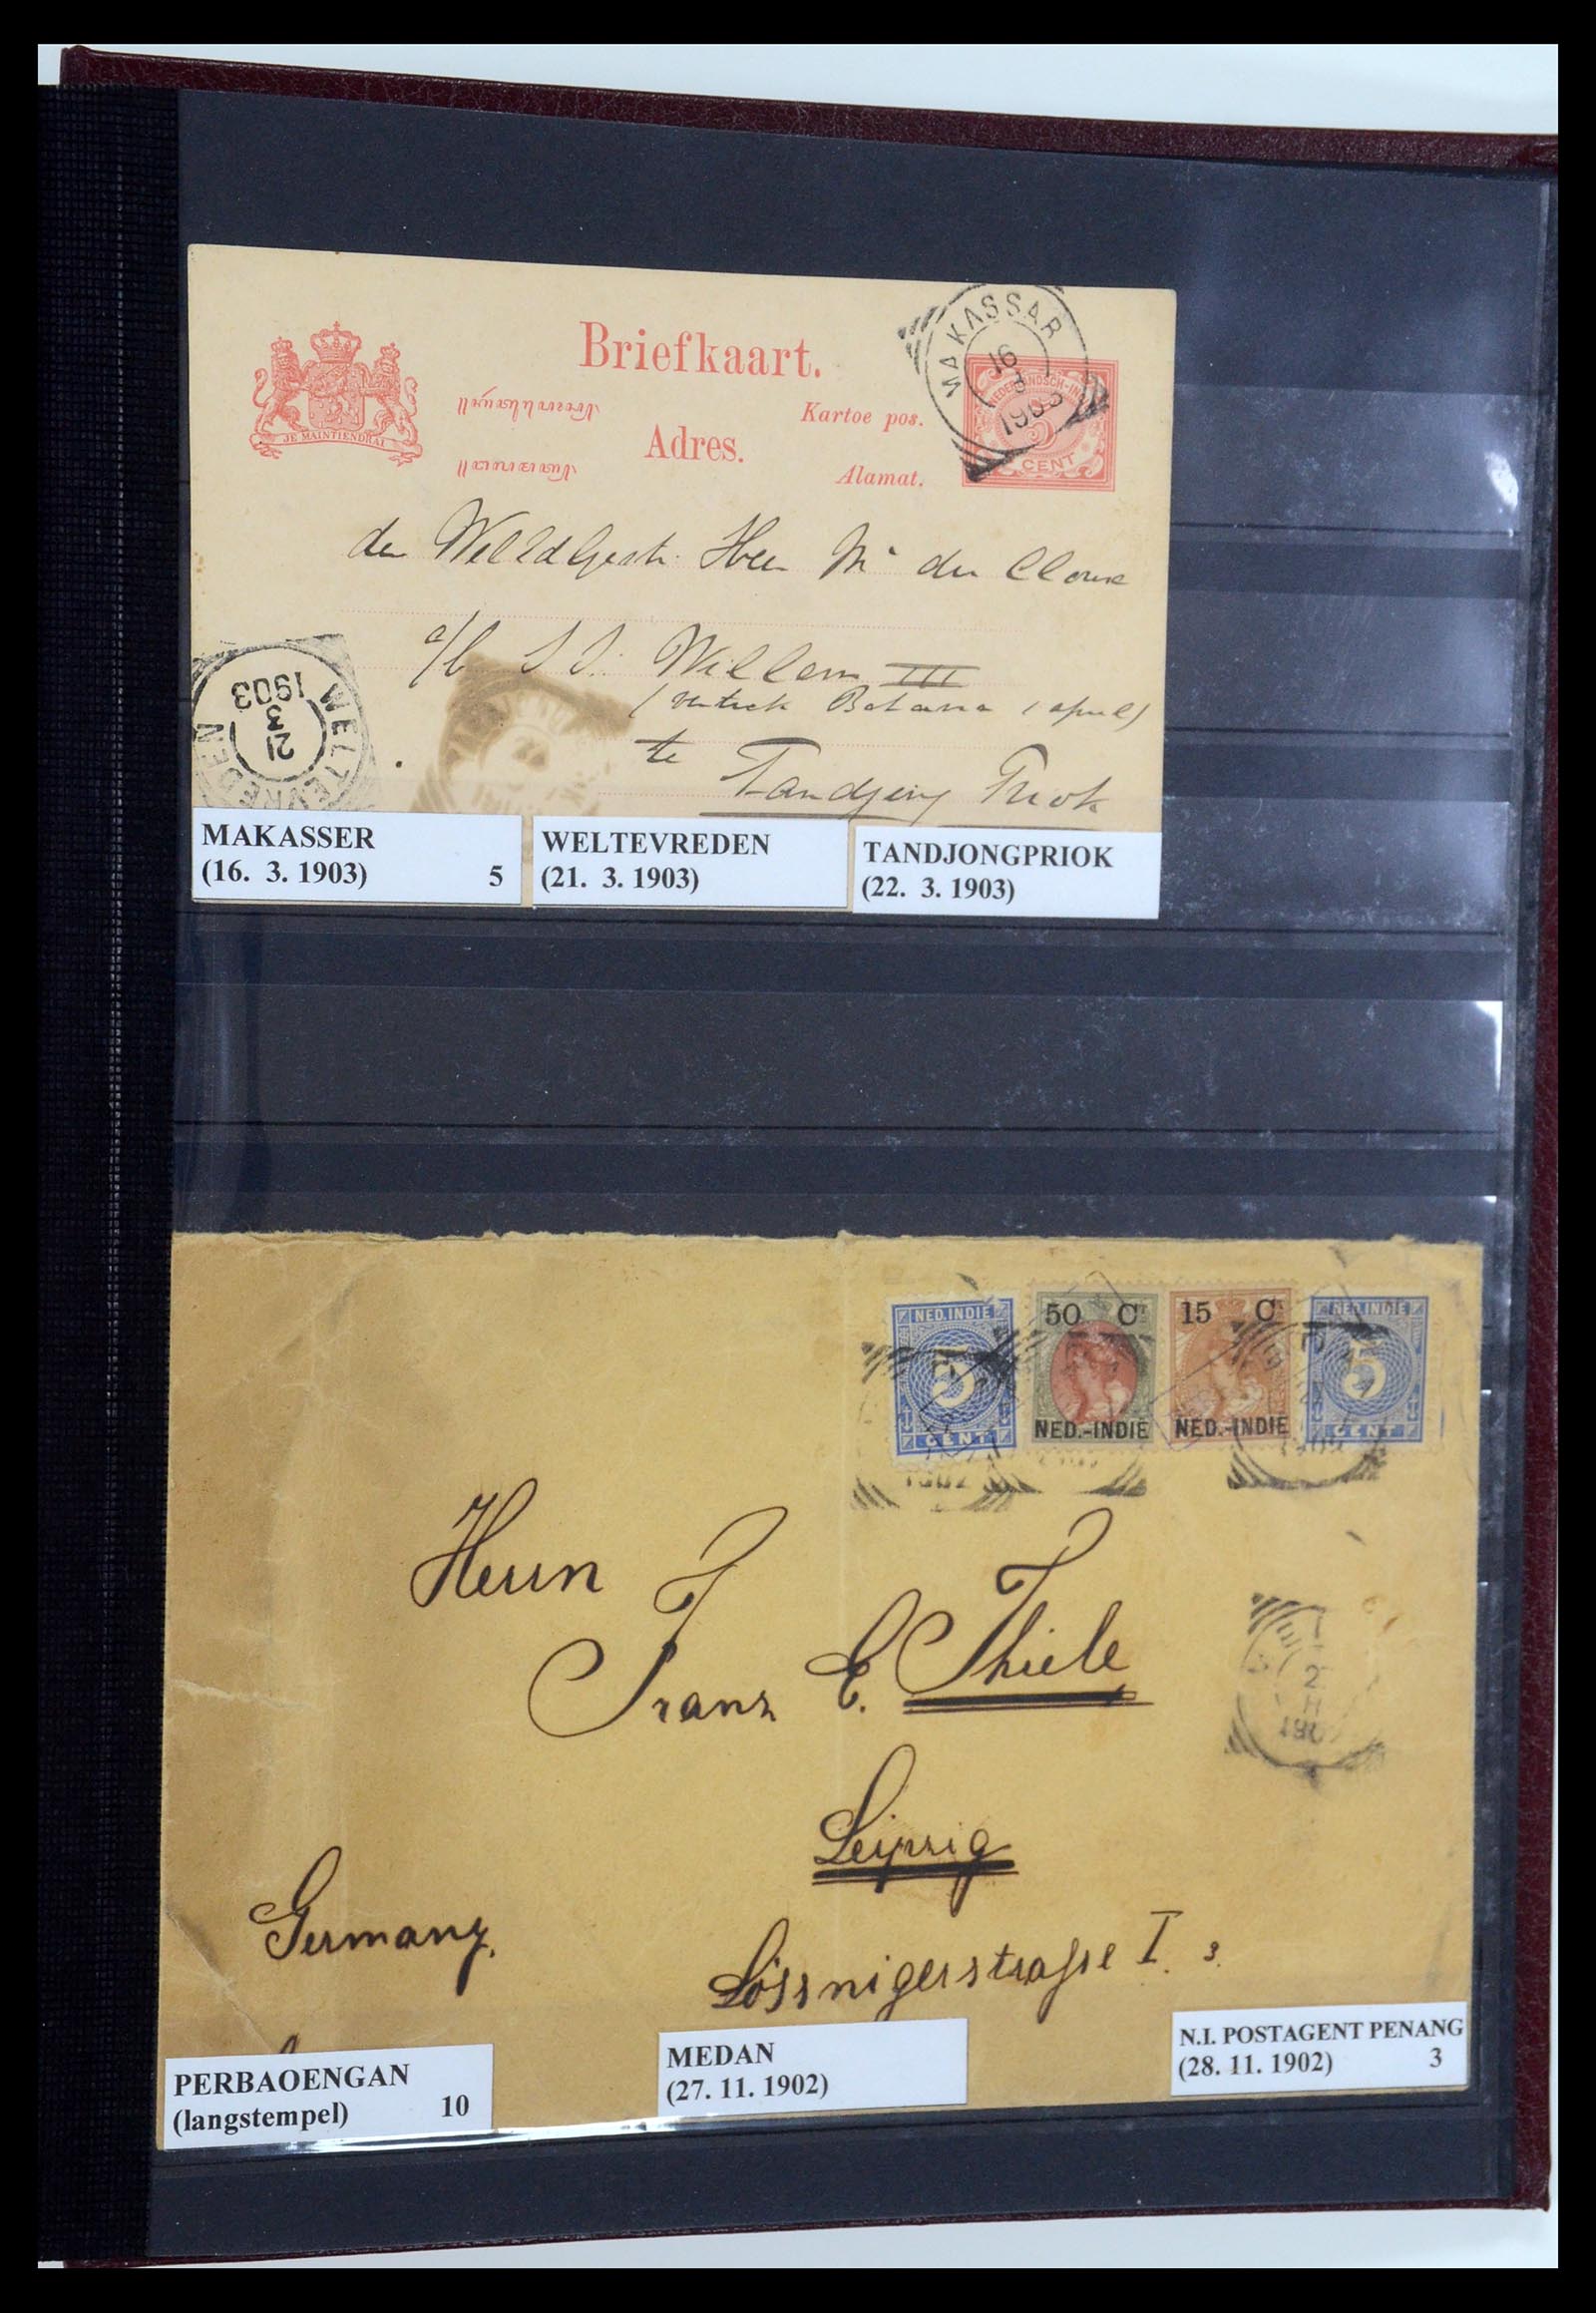 Briefkaart.
Kartoe pos.
Adres.
Alamat.
JE MAINTIENDRAI
MAKASSAR
16
3
1903
NEDERLANDSCH-INDIË
5
CENT
Heer
a/b S.S. Willem III
te
Tandjong Priok
WELTEVREDEN
21
3
1903
MAKASSER
(16. 3. 1903) 5
WELTEVREDEN
(21. 3. 1903)
TANDJONGPRIOK
(22. 3. 1903)
NED. INDIE
5
CENT
50 CT
NED.-INDIE
15 CT
NED.-INDIE
NED. INDIE
5
CENT
1902
Herrn
Franz E. Thiele
Leipzig
Germany.
Lössnigerstrasse I.
PERBAOENGAN
(langstempel) 10
MEDAN
(27. 11. 1902)
N.I. POSTAGENT PENANG
(28. 11. 1902) 3